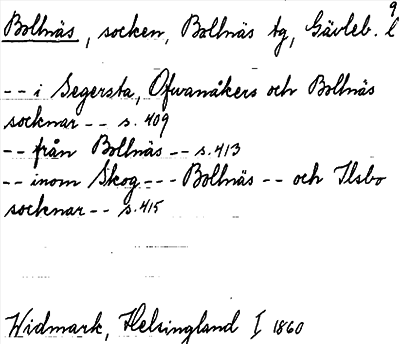 9
Bollnäs, socken, Bollnäs tg, Gävleb. l
-- i Segersta, Ofvanåkers och Bollnäs
socknar -- s. 409
-- från Bollnäs -- s. 413
-- inom Skog --- Bollnäs -- och Ilsbo
socknar -- s. 415
Widmark, Helsingland I 1860